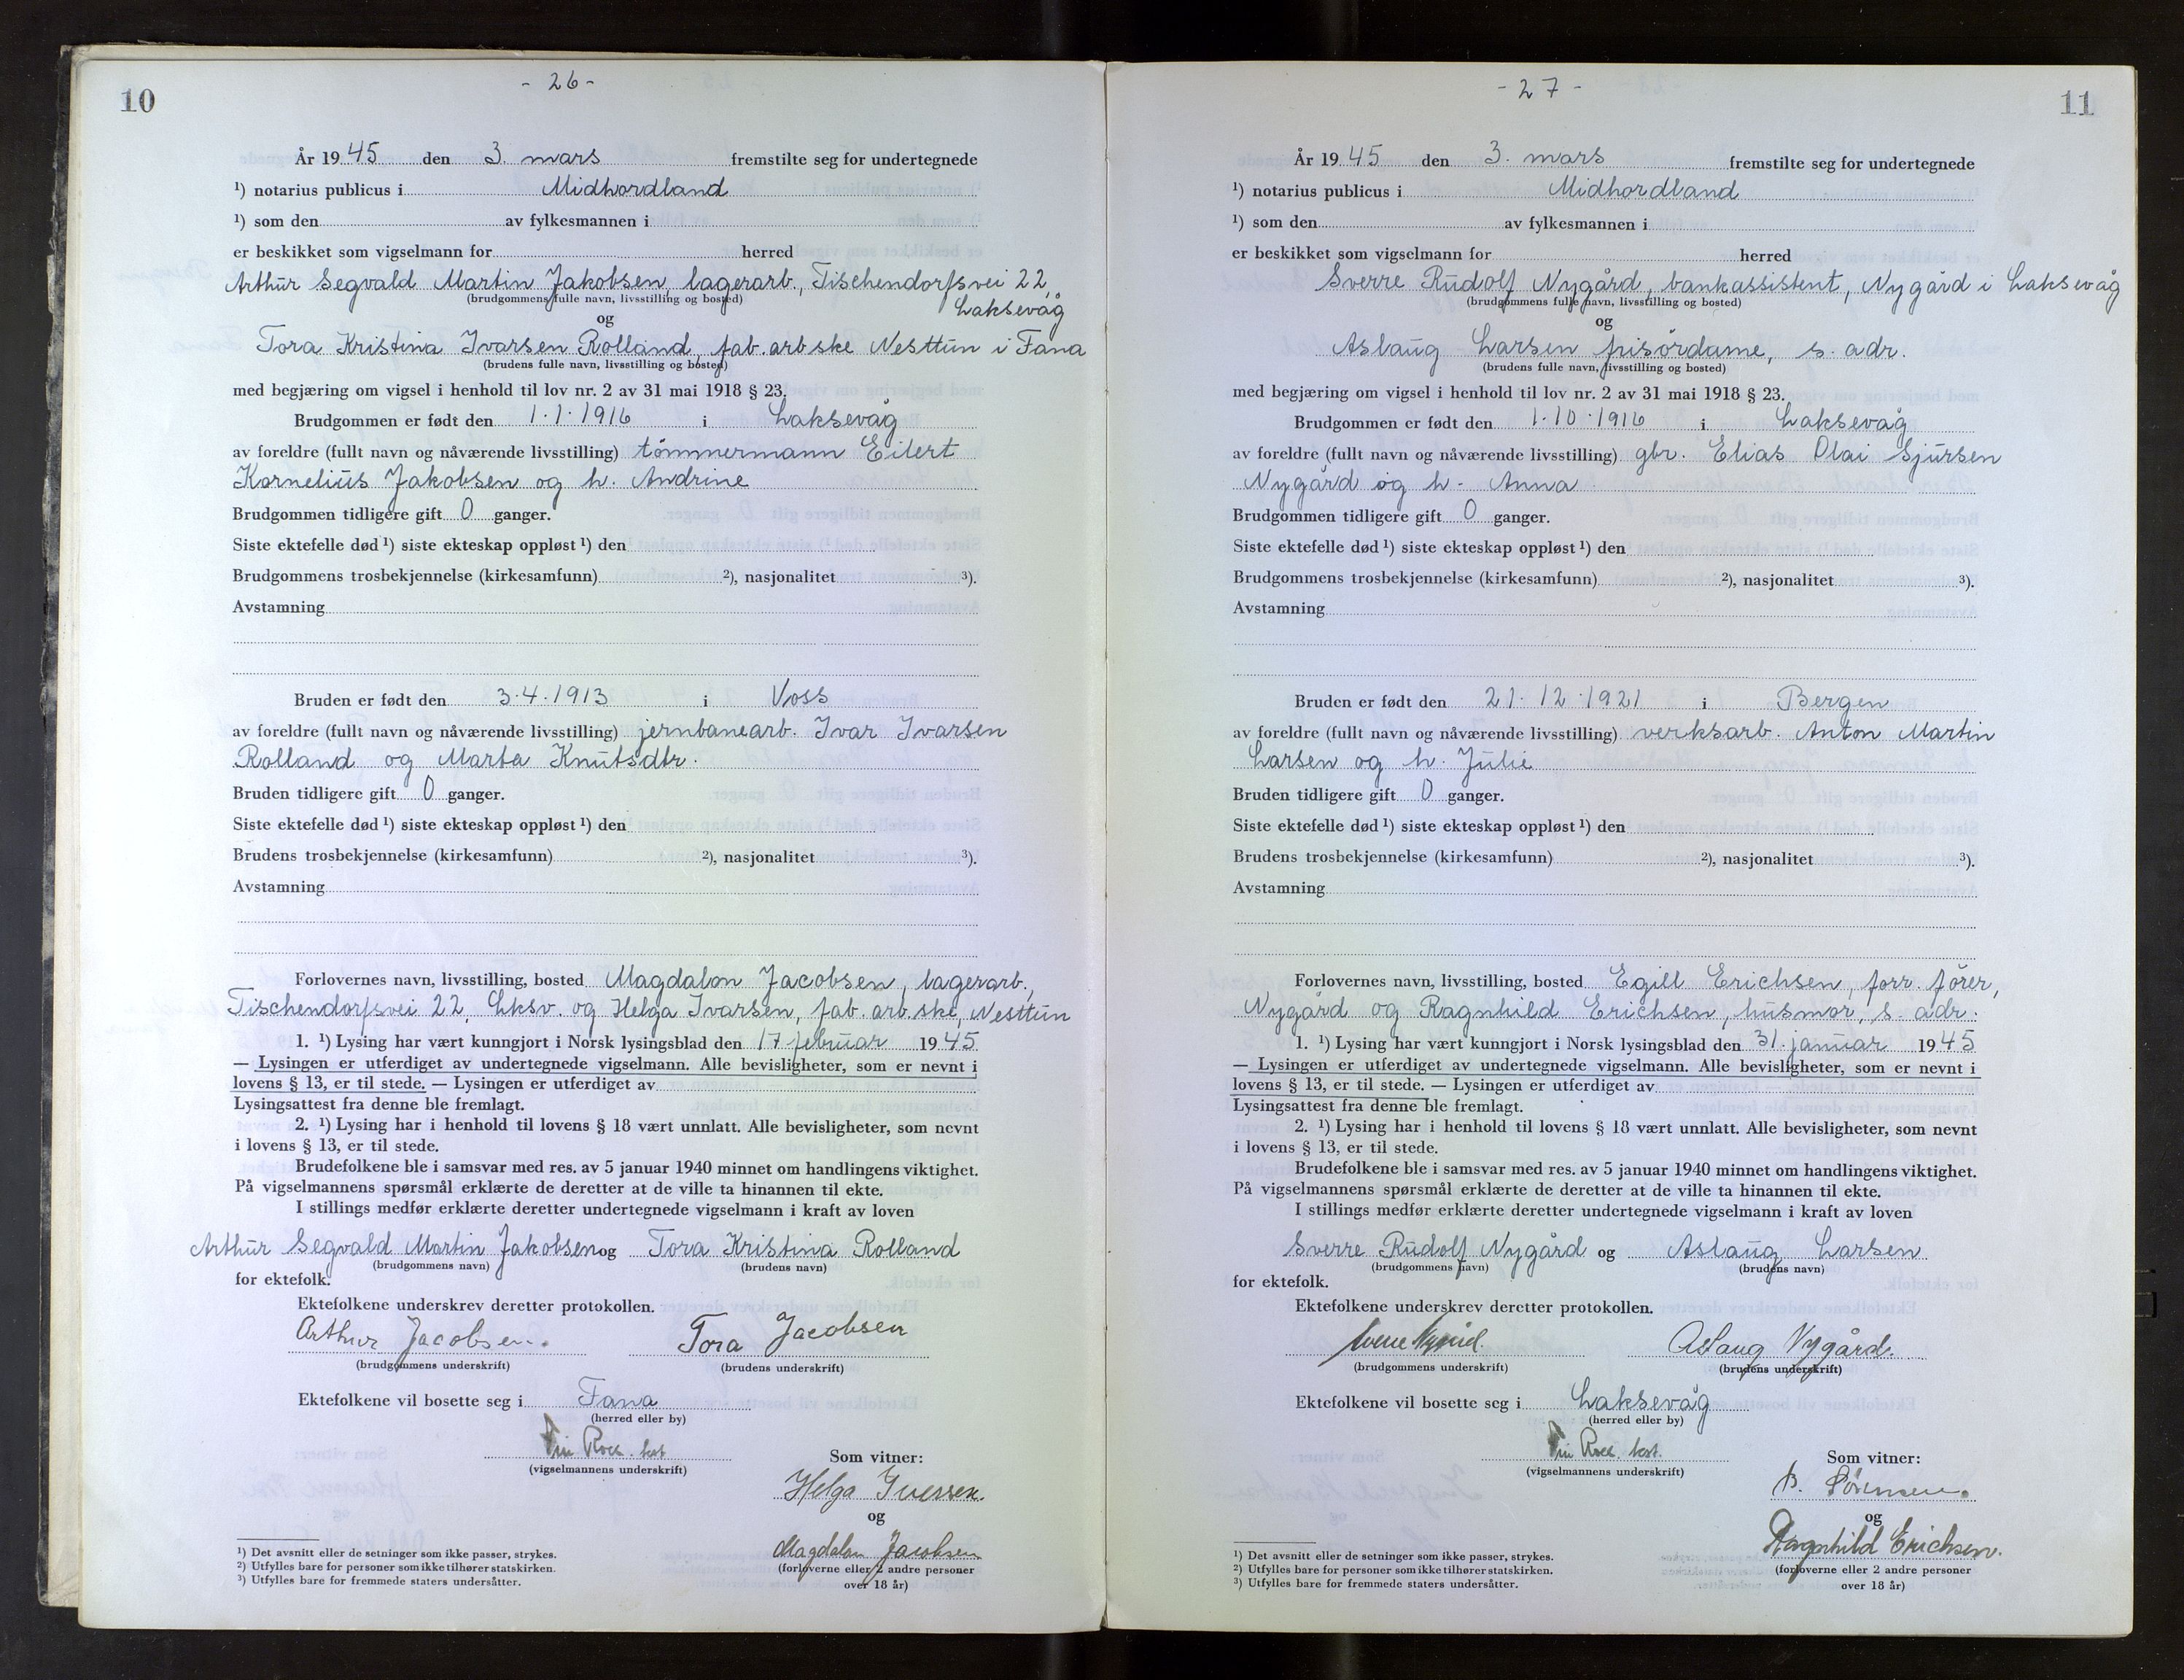 10
- 26 -
År 1945 den 3. mars fremstilte seg for undertegnede
¹) notarius publicus i Midhordland
¹) som den av fylkesmannen i
er beskikket som vigselmann for herred
Arthur Segvald Martin Jakobsen, lagerarb., Tischendorfsvei 22,
(brudgommens fulle navn, livsstilling og bosted)
Laksevåg
og
Tora Kristina Ivarsen Rolland, fab.arbske Nesttun i Fana
(brudens fulle navn, livsstilling og bosted)
med begjæring om vigsel i henhold til lov nr. 2 av 31 mai 1918 § 23.
Brudgommen er født den 1.1.1916 i Laksevåg
av foreldre (fullt navn og nåværende livsstilling) tömmermann Eilert
Kornelius Jakobsen og h. Andrine
Brudgommen tidligere gift 0 ganger.
Siste ektefelle død ¹) siste ekteskap oppløst ¹) den
Brudgommens trosbekjennelse (kirkesamfunn) ²), nasjonalitet ³).
Avstamning
Bruden er født den 3.4.1913 i Voss
av foreldre (fullt navn og nåværende livsstilling) jernbanearb. Ivar Ivarsen
Rolland og Marta Knutsdtr.
Bruden tidligere gift 0 ganger.
Siste ektefelle død ¹) siste ekteskap oppløst ¹) den
Brudens trosbekjennelse (kirkesamfunn) ²), nasjonalitet ³).
Avstamning
Forlovernes navn, livsstilling, bosted Magdalon Jacobsen, lagerarb.,
Tischendorfsvei 22, Lksv. og Helga Ivarsen, fab. arb.ske, Nesttun
1. ¹) Lysing har vært kunngjort i Norsk lysingsblad den 17 februar 1945
— Lysingen er utferdiget av undertegnede vigselmann. Alle bevisligheter, som er nevnt i
lovens § 13, er til stede. — Lysingen er utferdiget av
Lysingsattest fra denne ble fremlagt.
2. ¹) Lysing har i henhold til lovens § 18 vært unnlatt. Alle bevisligheter, som nevnt
i lovens § 13, er til stede.
Brudefolkene ble i samsvar med res. av 5 januar 1940 minnet om handlingens viktighet.
På vigselmannens spørsmål erklærte de deretter at de ville ta hinannen til ekte.
I stillings medfør erklærte deretter undertegnede vigselmann i kraft av loven
Arthur Segvald Martin Jakobsen og Tora Kristina Rolland
(brudgommens navn) (brudens navn)
for ektefolk.
Ektefolkene underskrev deretter protokollen.
Arthur Jacobsen. Tora Jacobsen
(brudgommens underskrift) (brudens underskrift)
Ektefolkene vil bosette seg i Fana
(herred eller by)
(vigselmannens underskrift)
Som vitner:
Helga Ivarsen.
og
Magdalon Jacobsen
(forloverne eller 2 andre personer
over 18 år)
¹) Det avsnitt eller de setninger som ikke passer, strykes.
²) Utfylles bare for personer som ikke tilhører statskirken.
³) Utfylles bare for fremmede staters undersåtter.
11
- 27 -
År 1945 den 3. mars fremstilte seg for undertegnede
¹) notarius publicus i Midhordland
¹) som den av fylkesmannen i
er beskikket som vigselmann for herred
Sverre Rudolf Nygård, bankassistent, Nygård i Laksevåg
(brudgommens fulle navn, livsstilling og bosted)
og
Aslaug Larsen frisördame, s. adr.
(brudens fulle navn, livsstilling og bosted)
med begjæring om vigsel i henhold til lov nr. 2 av 31 mai 1918 § 23.
Brudgommen er født den 1.10.1916 i Laksevåg
av foreldre (fullt navn og nåværende livsstilling) gbr. Elias Olai Sjursen
Nygård og h. Anna
Brudgommen tidligere gift 0 ganger.
Siste ektefelle død ¹) siste ekteskap oppløst ¹) den
Brudgommens trosbekjennelse (kirkesamfunn) ²), nasjonalitet ³).
Avstamning
Bruden er født den 21.12.1921 i Bergen
av foreldre (fullt navn og nåværende livsstilling) verksarb. Anton Martin
Larsen og h. Julie
Bruden tidligere gift 0 ganger.
Siste ektefelle død ¹) siste ekteskap oppløst ¹) den
Brudens trosbekjennelse (kirkesamfunn) ²), nasjonalitet ³).
Avstamning
Forlovernes navn, livsstilling, bosted Egill Erichsen, forr. förer,
Nygård og Ragnhild Erichsen, husmor, s. adr.
1. ¹) Lysing har vært kunngjort i Norsk lysingsblad den 31. januar 1945
— Lysingen er utferdiget av undertegnede vigselmann. Alle bevisligheter, som er nevnt i
lovens § 13, er til stede. — Lysingen er utferdiget av
Lysingsattest fra denne ble fremlagt.
2. ¹) Lysing har i henhold til lovens § 18 vært unnlatt. Alle bevisligheter, som nevnt
i lovens § 13, er til stede.
Brudefolkene ble i samsvar med res. av 5 januar 1940 minnet om handlingens viktighet.
På vigselmannens spørsmål erklærte de deretter at de ville ta hinannen til ekte.
I stillings medfør erklærte deretter undertegnede vigselmann i kraft av loven
Sverre Rudolf Nygård og Aslaug Larsen
(brudgommens navn) (brudens navn)
for ektefolk.
Ektefolkene underskrev deretter protokollen.
Sverre Nygård. Aslaug Nygård.
(brudgommens underskrift) (brudens underskrift)
Ektefolkene vil bosette seg i Laksevåg
(herred eller by)
(vigselmannens underskrift)
Som vitner:
B. Sörensen.
og
Ragnhild Erichsen.
(forloverne eller 2 andre personer
over 18 år)
¹) Det avsnitt eller de setninger som ikke passer, strykes.
²) Utfylles bare for personer som ikke tilhører statskirken.
³) Utfylles bare for fremmede staters undersåtter.